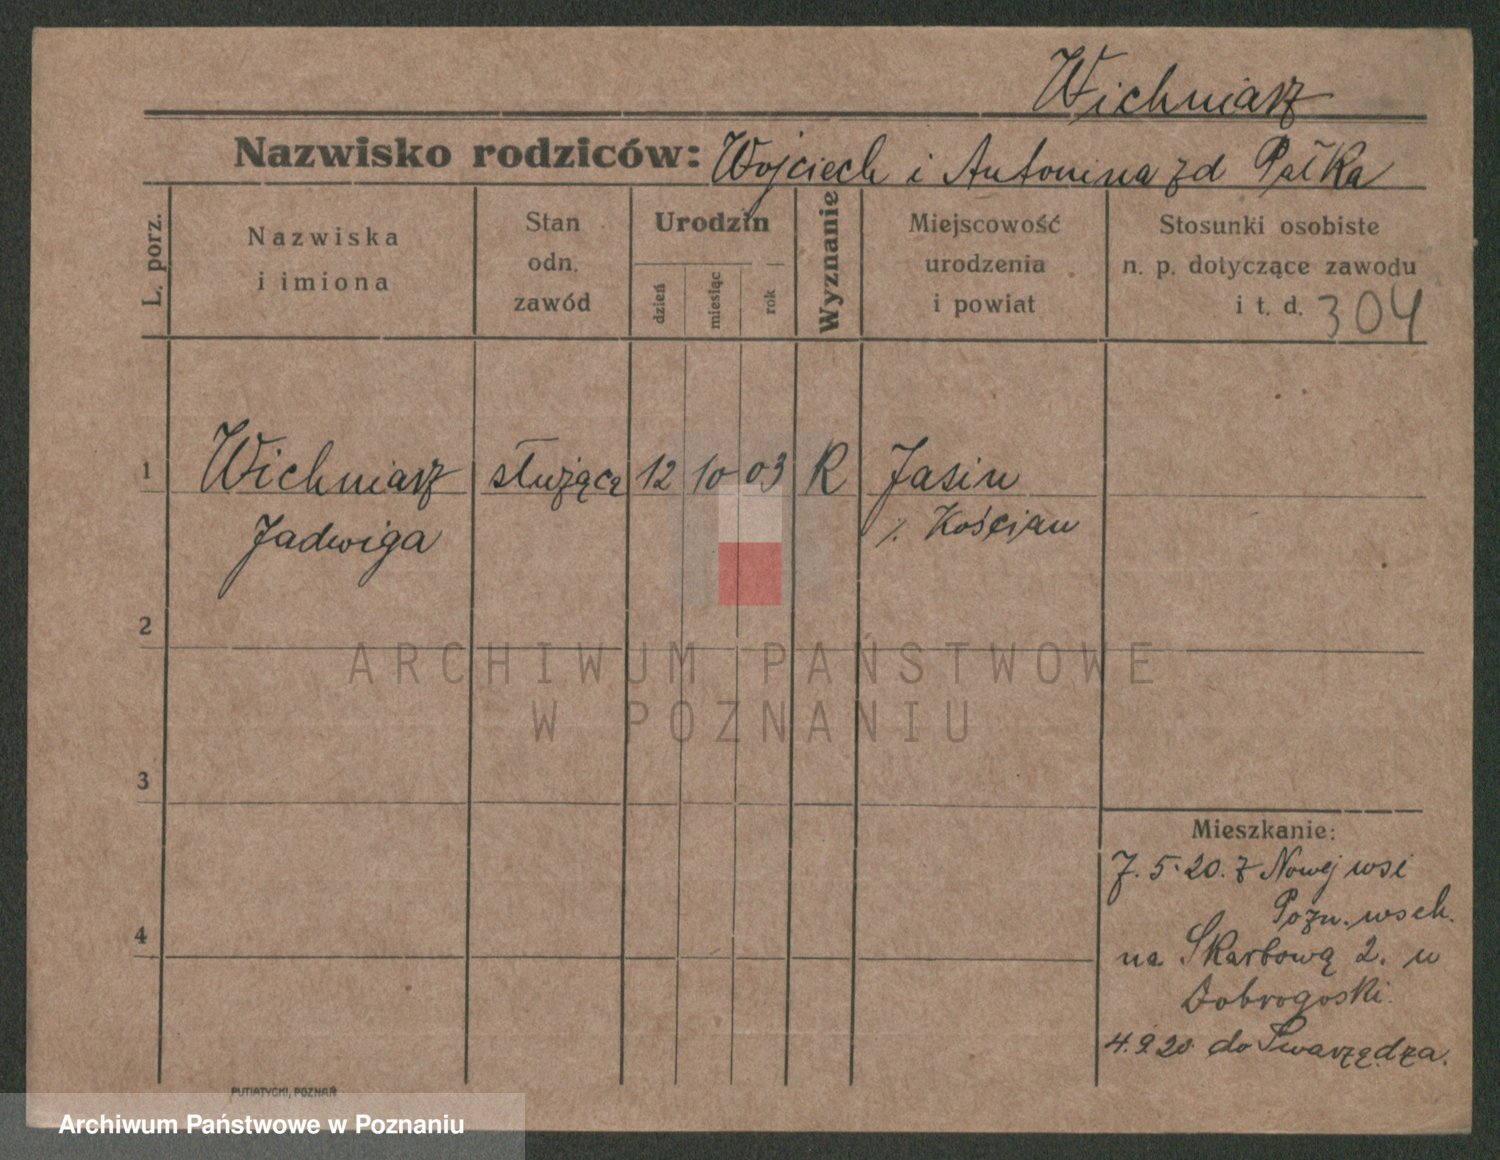 Wichniarz
Nazwisko rodziców: Wojciech i Antonina zd Pałka
L. porz.
Nazwiska
i imiona
Stan
odn.
zawód
Urodzin
dzień
miesiąc
rok
Wyznanie
Miejscowość
urodzenia
i powiat
Stosunki osobiste
n. p. dotyczące zawodu
i t. d. 304
1 Wichniarz służąca 12 10 03 R Jasin
Jadwiga /. Kościan
2
3
4
Mieszkanie:
7. 5. 20. z Nowej wsi
Pozn. wsch.
na Skarbową 2. u
Dobrogoski.
4. 9 20 do Swarzędza.
PUTIATYCKI, POZNAŃ
ARCHIWUM PAŃSTWOWE
W POZNANIU
Archiwum Państwowe w Poznaniu